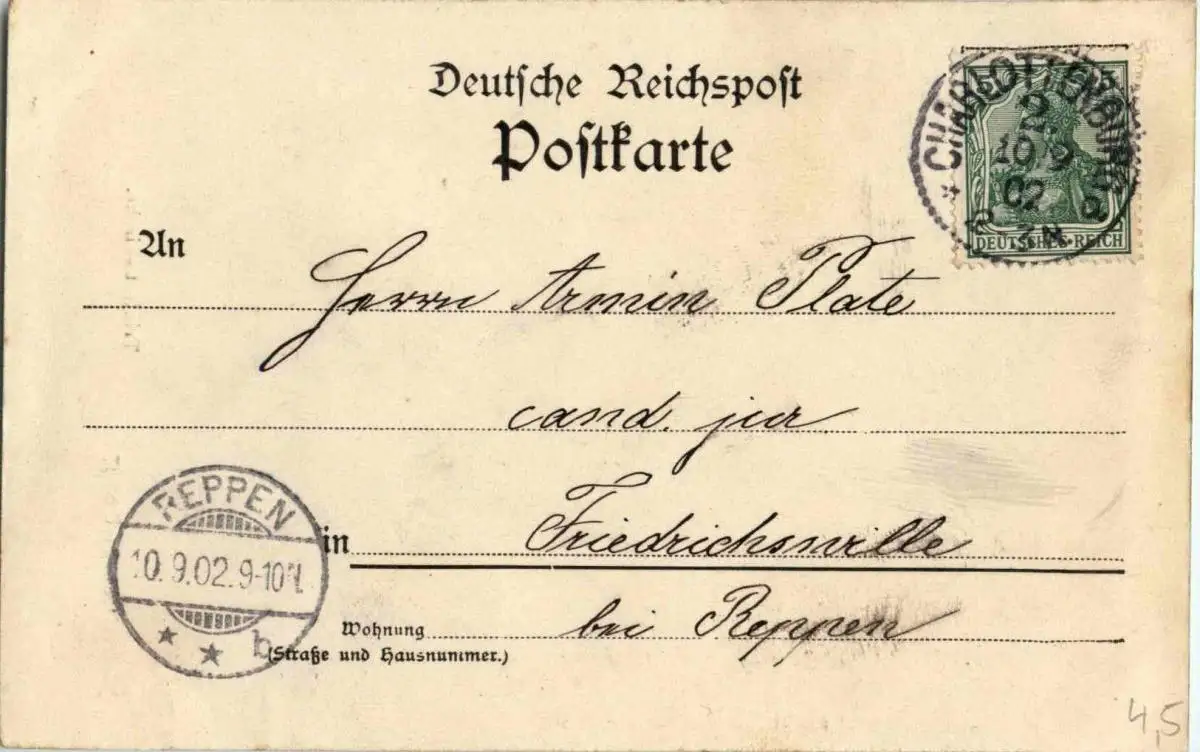 Deutsche Reichspost
Postkarte
CHARLOTTENBURG
2.
10.9
02
2-3N
5
DEUTSCHES REICH
An
Herrn Armin Plate
cand. jur
REPPEN
10.9.02.9-10N.
b
in Friedrichswille
Wohnung bei Reppen
(Straße und Hausnummer.)
4,5